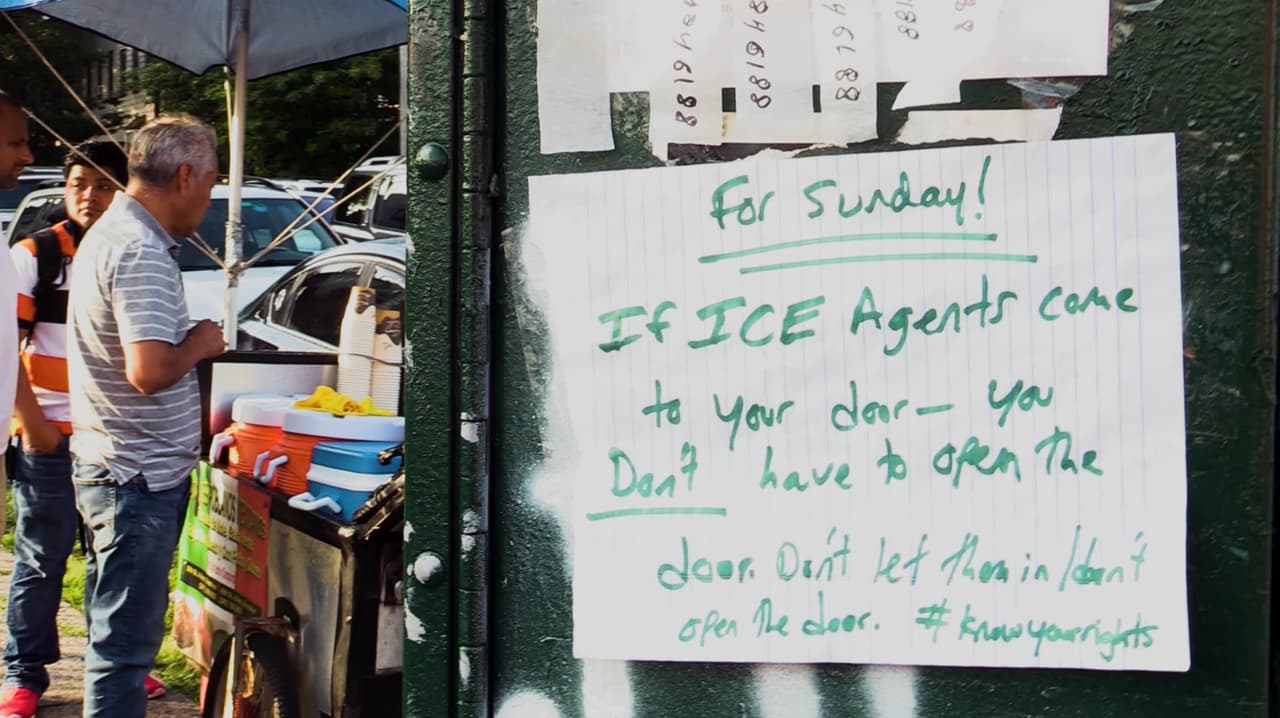 For Sunday!
If ICE Agents come
to your door— you
Don't have to open the
door. Don't let them in/don't
open the door. #knowyourrights